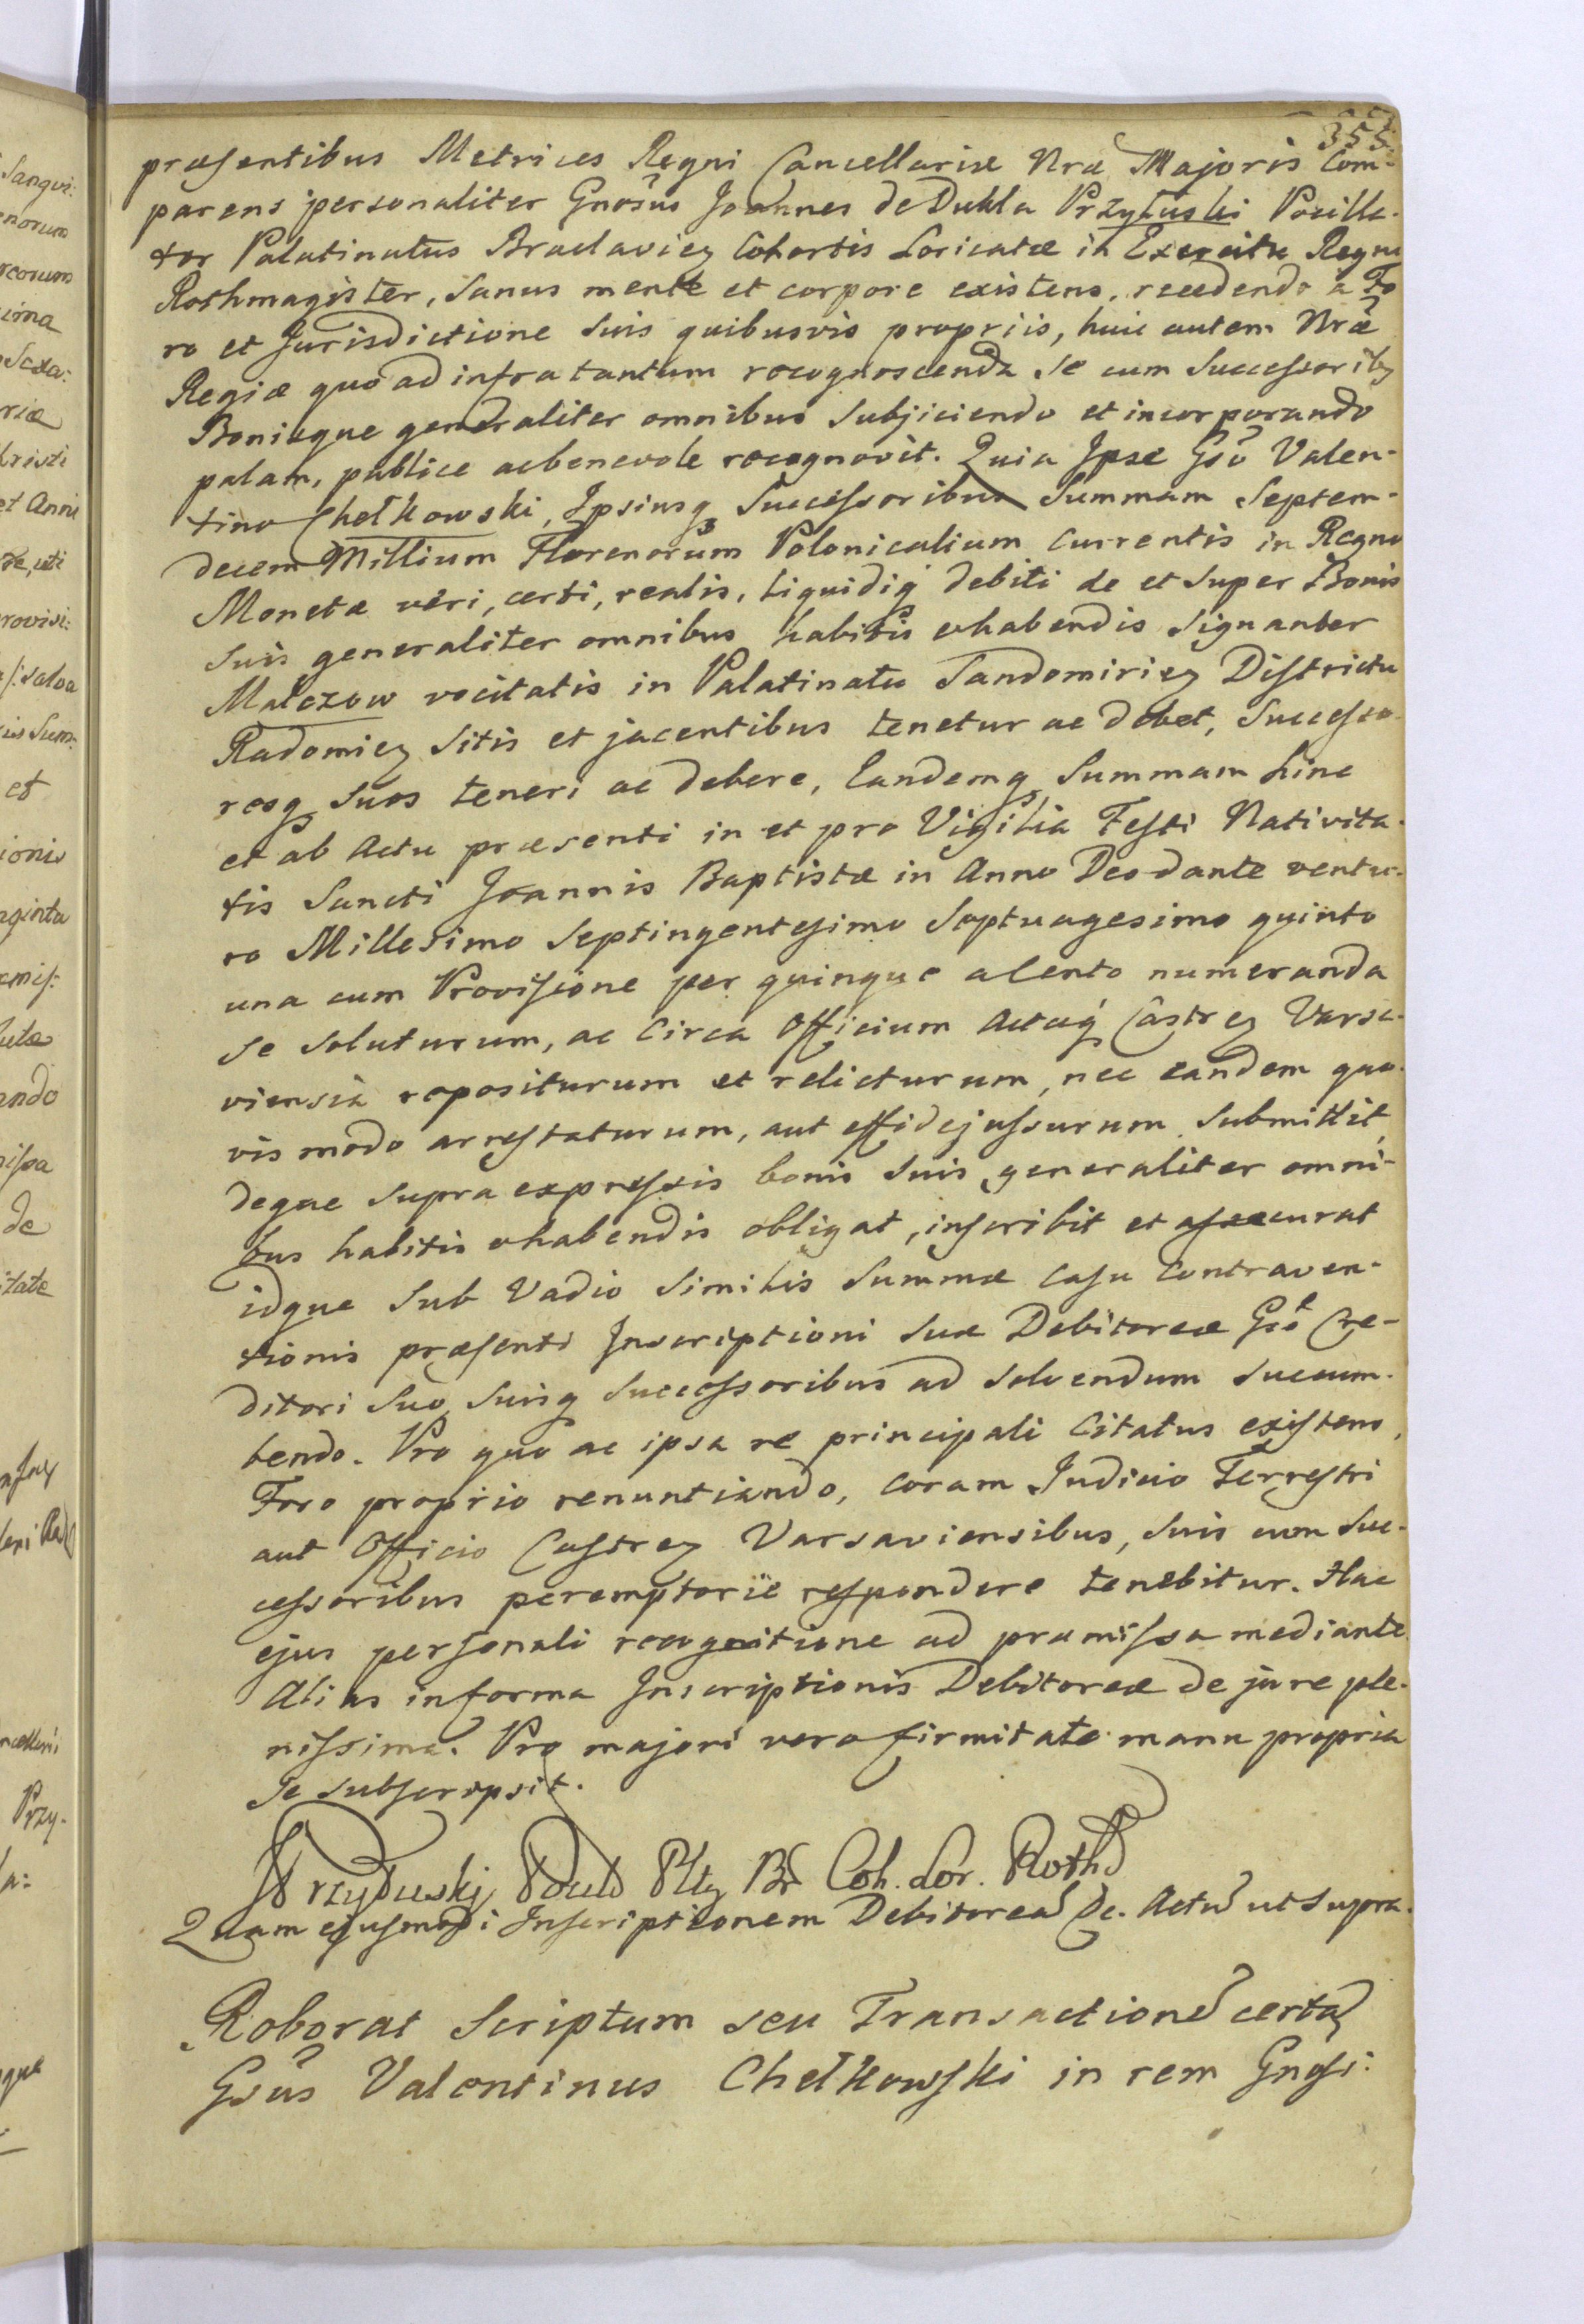 355.
præsentibus Metrices Regni Cancellariæ Nræ Majoris Com-
parens personaliter Gnosus Joannes de Dukla Przyłuski Pocilla-
tor Palatinatus Braclaviey Cohortis Loricatæ in Exercitu Regni
Rothmagister, Sanus mente et corpore existens, recedendo a Fo
ro et Jurisdictione suis quibusvis propriis, huic autem Nræ
Regiæ quo ad infra tantum recognoscenda se cum Successoribg
Bonisque generaliter omnibus Subjiciendo et incorporando
palam, publice acbenevole recognovit. Quia Ipse Gsō Valen-
tino Chełkowski, Ipsiusq Successoribus Summam Septem-
decem Millium Florenorum Polonicalium Currentis in Regno
Monetæ veri, certi, realis, liquidiq debiti de et Super Bonis
Suis generaliter omnibus habitis ehabendis Signanter
Malczow vocitatis in Palatinatu Sandomiriey Districtu
Radomiey Sitis et jacentibus tenetur ac debet, Successo-
resq Suos teneri ac debere, Eandemq Summam hinc
et ab Actu præsenti in et pro Vigilia Festi Nativita-
tis Sancti Joannis Baptistæ in Anno Deodante ventu-
ro Millesimo Septingentesimo Septuagesimo quinto
una cum Provisione per quinque a Cento numeranda
Se Soluturum, ac Circa Officium Actaq Castrey Varsa-
viensia repositurum et relicturum, nec eandem quo-
vis modo arrestaturum, aut effidejussurum Submittit,
deque Supra expressis bonis Suis generaliter omni-
bus habitis ehabendis obligat, inscribit et assecurat
idque Sub Vadio Similis Summæ Casu Contraven-
tionis præsenti Inscriptioni Suæ Debitoreæ Gsō Cre-
ditori Suo Suisq Successoribus ad Solvendum Succum-
bendo. Pro quo ac ipsa re principali Citatus existens,
Foro proprio renuntiando, Coram Judicio Terrestri
aut Officio Castrey Varsaviensibus, Suis cum Suc-
cessoribus peremptorie respondere tenebitur. Hac
ejus personali recognitione ad præmissa mediante
Alias informa Inscriptionis Debitoreæ de jure ple-
nissima. Pro majori vero firmitate manu propria
Se Subscripsit.
JPrzyłuski Pocill Pltg Br Coh. Lor. Roth
Quam ejusmodi Inscriptionem Debitorea Dc. Actu ut supra.
Roborat Scriptum seu Transactione certa
Gsūs Valentinus Chełkowski in rem Gnosi: